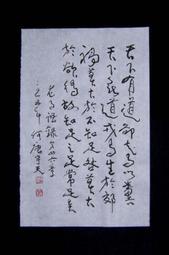 天下有道却走馬以糞
天下無道戎馬生於郊
禍莫大於不知足咎莫大
於欲得故知足之足常足矣
老子語錄第四六章